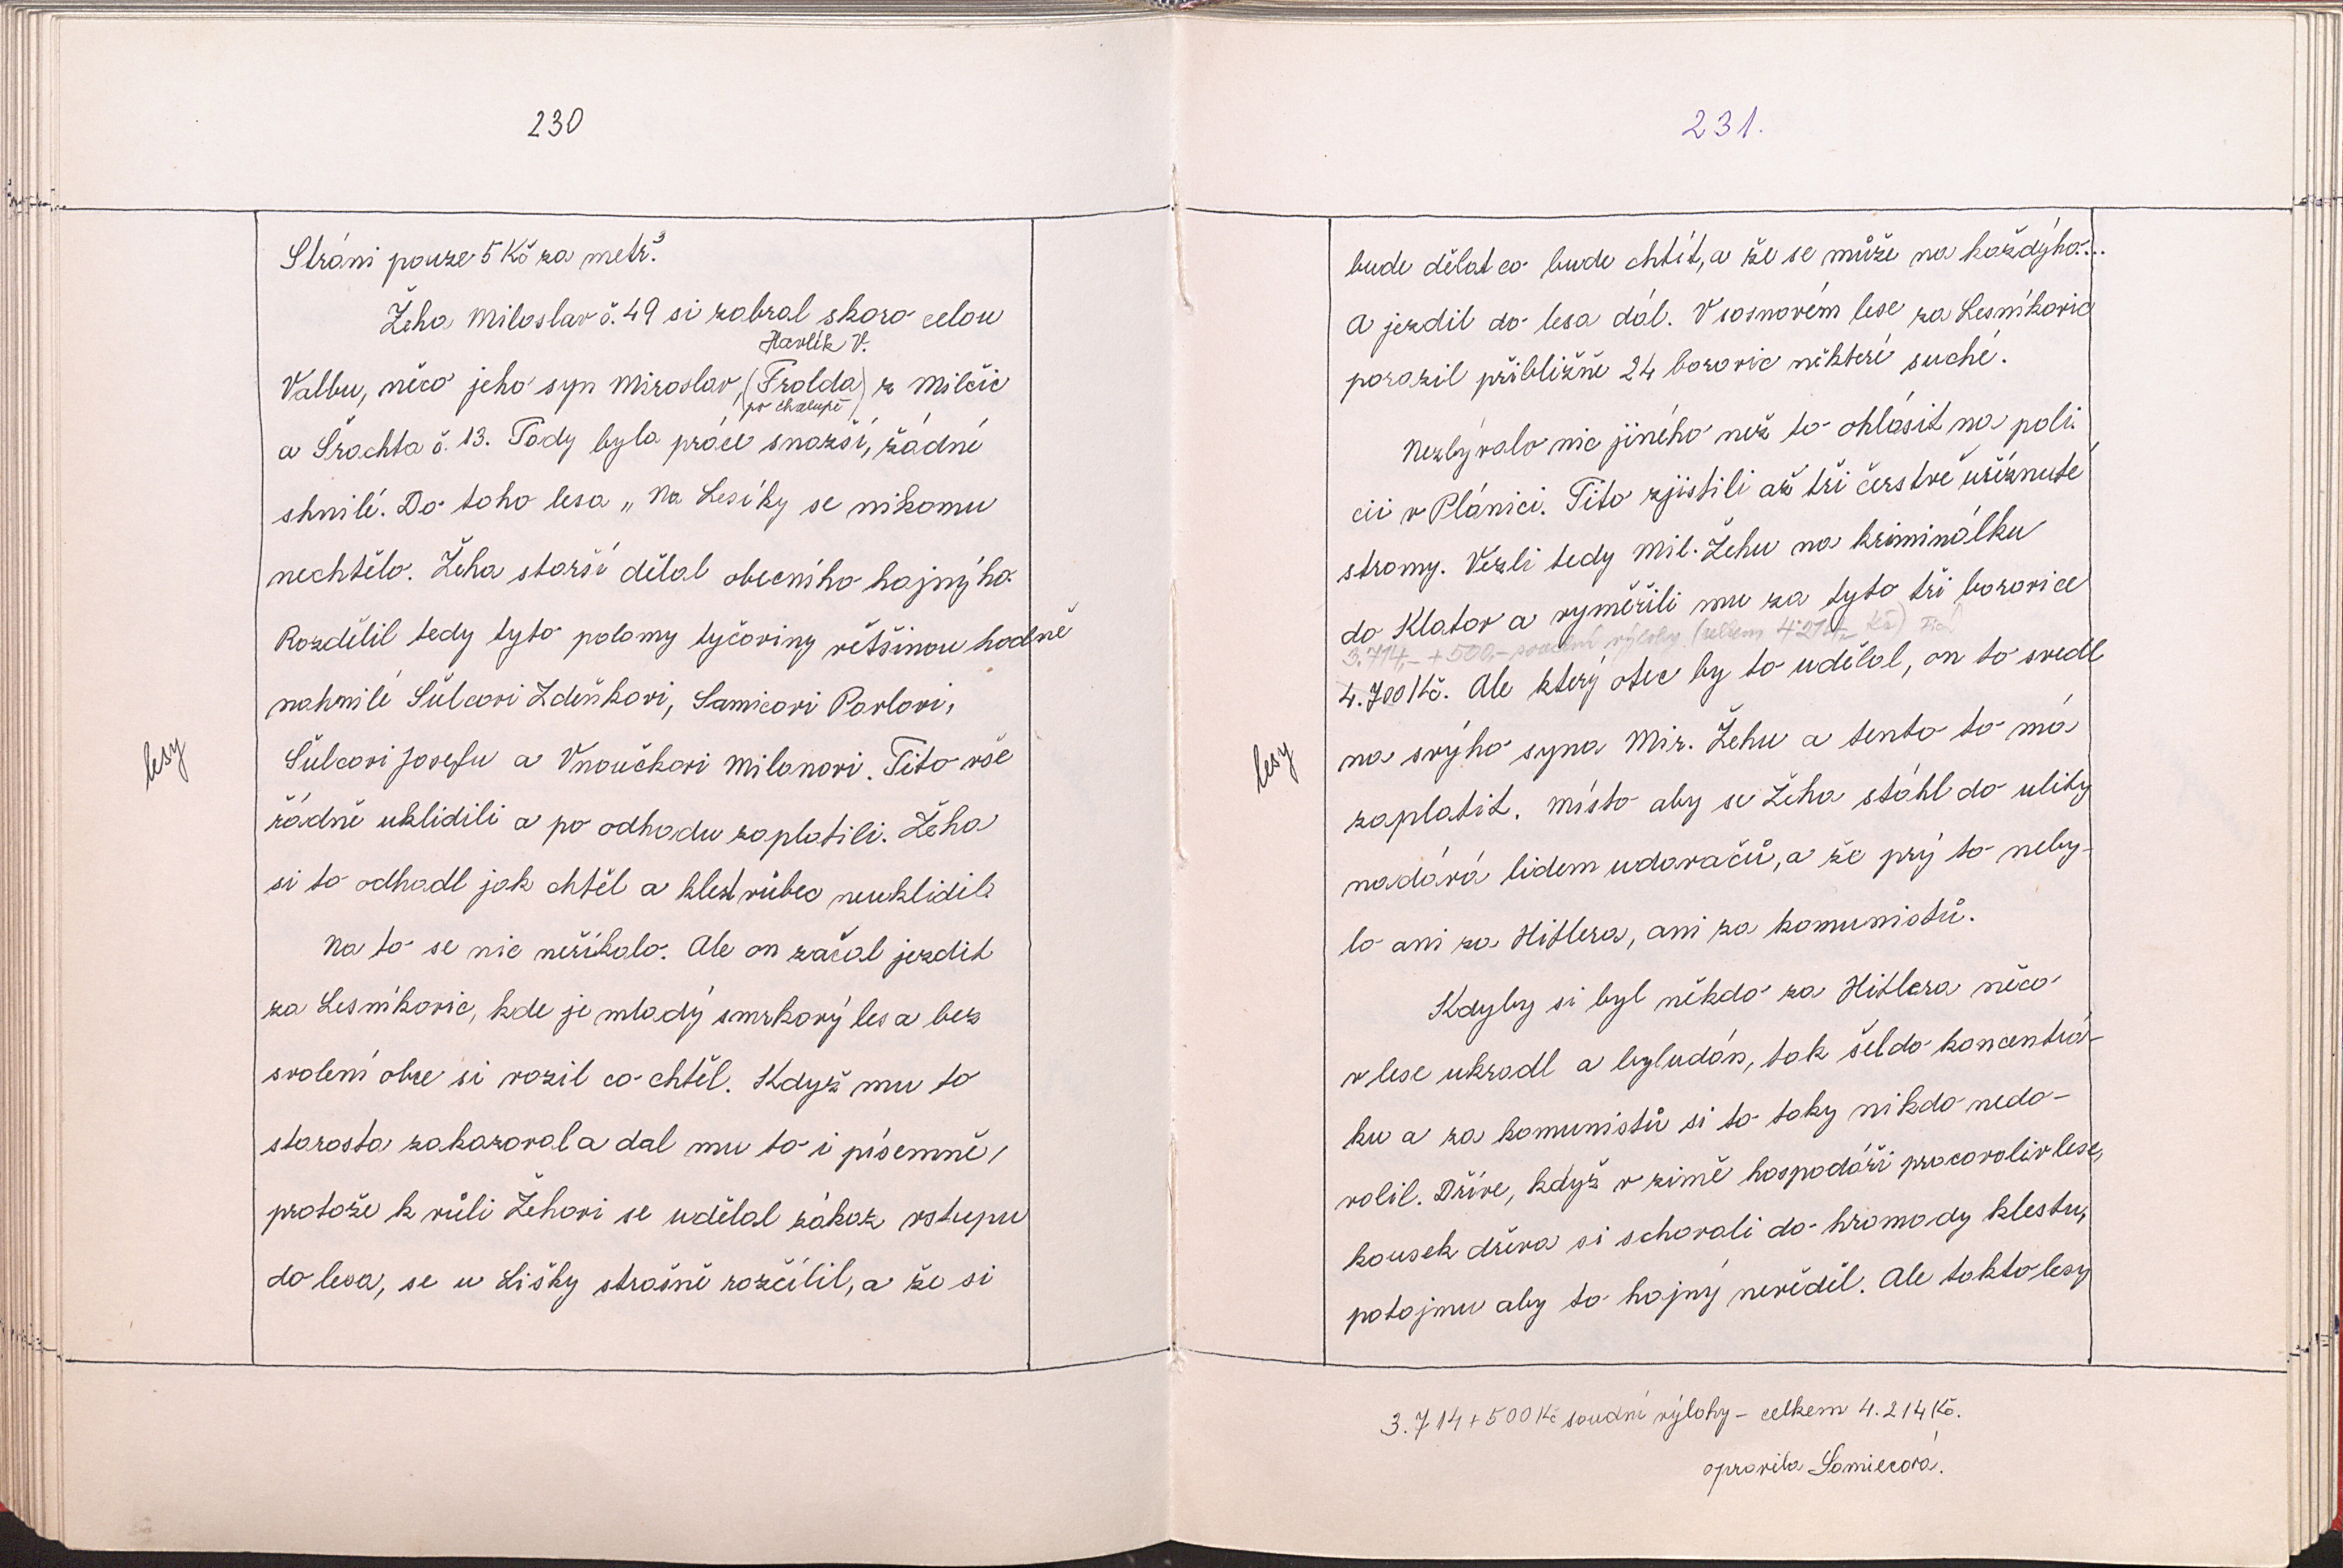 230
Stráni pouze 5 Kč za metr³.
Žeha Miloslav č. 49 si zabral skoro celou
Havlík V.
Valbu, něco jeho syn Miroslav, (Frolda) z Milčic
po chalupě
a Šrachta č. 13. Tady byla práce snazší, žádné
shnilé. Do toho lesa „Na Lesíky se nikomu
nechtělo. Žeha starší dělal obecního hajnýho.
Rozdělil tedy tyto polomy tyčoviny většinou hodně
nahnilé Šulcovi Zdeňkovi, Samcovi Pavlovi,
lesy
Šulcovi Josefu a Vnoučkovi Milanovi. Tito vše
řádně uklidili a po odhadu zaplatili. Žeha
si to odhadl jak chtěl a klest vůbec neuklidil.
Na to se nic neříkalo. Ale on začal jezdit
za Lesníkovic, kde je mladý smrkový les a bez
svolení obce si vozil co chtěl. Když mu to
starosta zakazoval a dal mu to i písemně,
protože k vůli Žehovi se udělal zákaz vstupu
do lesa, se u Lišky strašně rozčílil, a že si
231.
bude dělat co bude chtít, a že se může na každýho...
A jezdil do lesa dál. V sosnovém lese za Lesníkovic
porazil přibližně 24 borovic některé suché.
Nezbývalo nic jiného než to ohlásit na poli-
cii v Plánici. Tito zjistili až tři čerstvě uříznuté
stromy. Vezli tedy Mil. Žehu na kriminálku
do Klatov a vyměřili mu za tyto tři borovice
3.714,- + 500,- soudní výlohy (celkem 4214,- Kč)
4.700 Kč. Ale který otec by to udělal, on to svedl
lesy
na svýho syna Mir. Žehu a tento to má
zaplatit. Místo aby se Žeha stáhl do ulity
nadává lidem udavačů, a že prý to neby-
lo ani za Hitlera, ani za komunistů.
Kdyby si byl někdo za Hitlera něco
v lese ukradl a byl udán, tak šel do koncentrá-
ku a za komunistů si to taky nikdo nedo-
volil. Dříve, když v zimě hospodáři pracovali v lese,
kousek dřeva si schovali do hromady klestu,
potajmu aby to hajný nevěděl. Ale takto lesy
3.714 + 500 Kč soudní výlohy - celkem 4.214 Kč.
opravila Samcová.